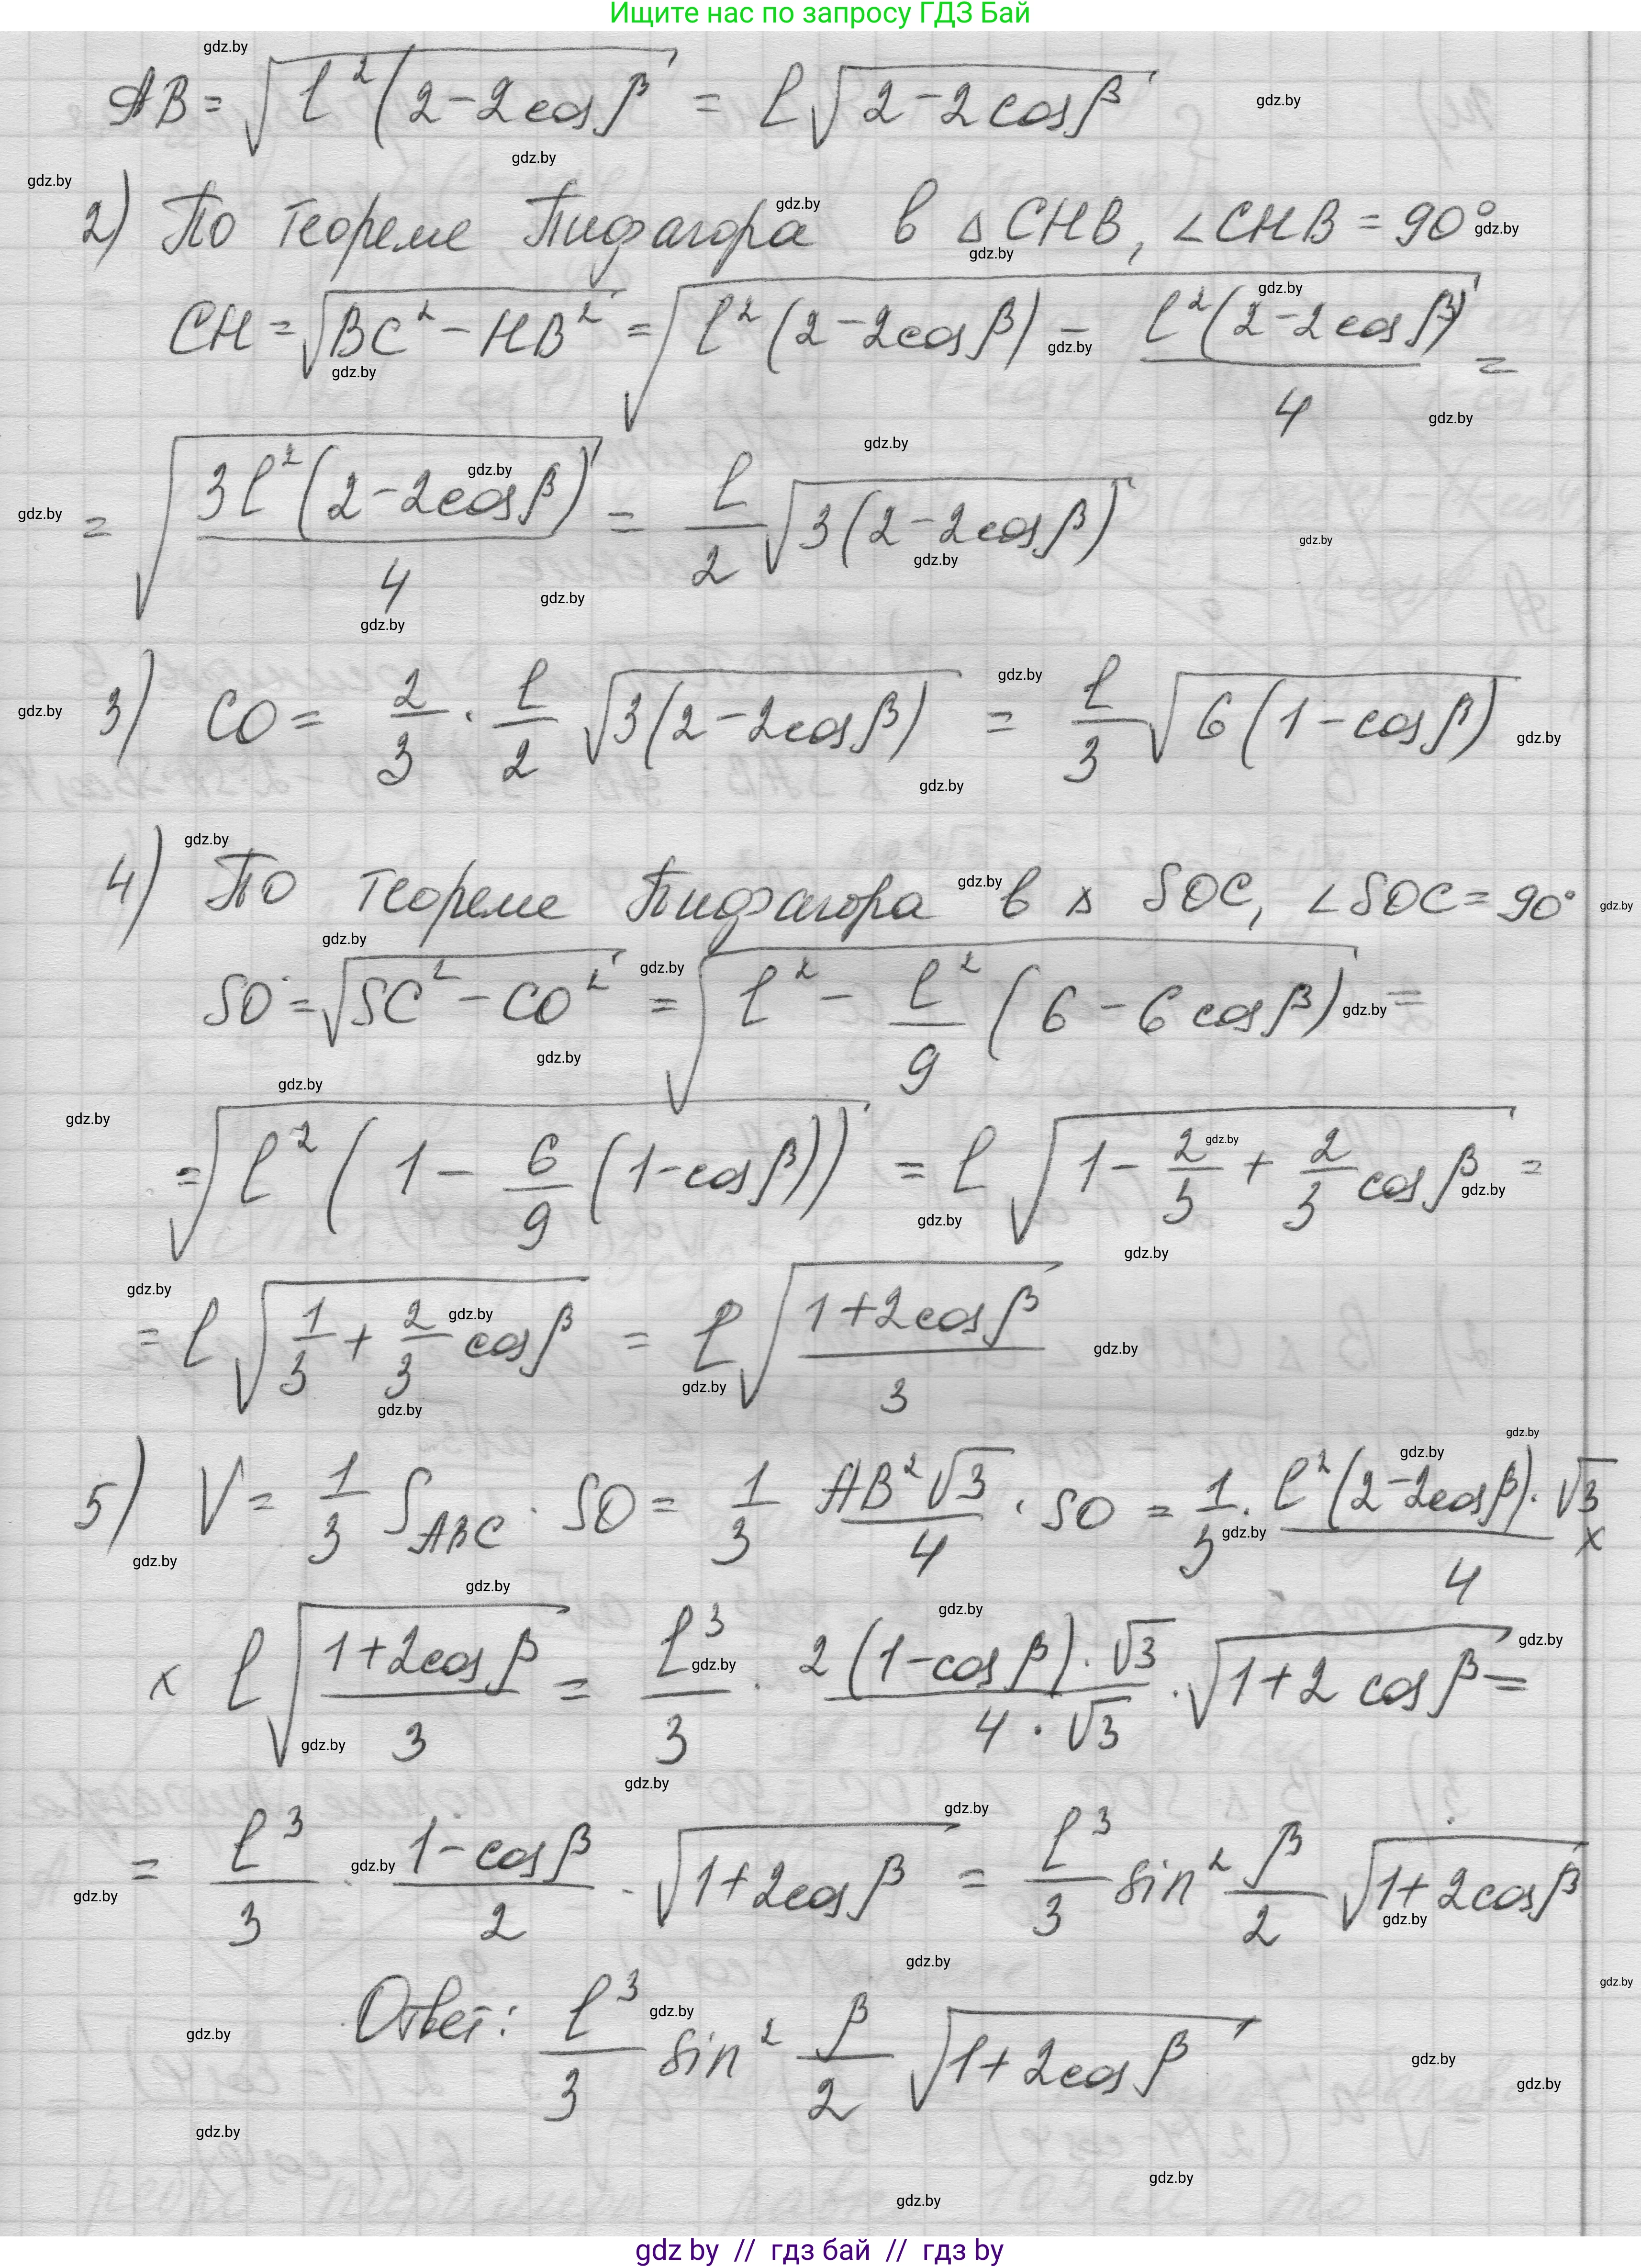 Ищите нас по запросу ГДЗ Бай
AB = √(l²(2-2cosβ) = l√(2-2cosβ)
2) По теореме Пифагора в △CHB, ∠CHB = 90°
CH = √(BC² - HB²) = √(l²(2-2cosβ) - l²(2-2cosβ)/4) =
= √(3l²(2-2cosβ)/4) = l/2 √(3(2-2cosβ))
3) CO = 2/3 · l/2 √(3(2-2cosβ)) = l/3 √(6(1-cosβ))
4) По теореме Пифагора в △ SOC, ∠SOC = 90°
SO = √(SC² - CO²) = √(l² - l²/9 (6-6cosβ)) =
= √(l²(1 - 6/9 (1-cosβ))) = l √(1 - 2/3 + 2/3 cosβ) =
= l √(1/3 + 2/3 cosβ) = l √((1+2cosβ)/3)
5) V = 1/3 S_ABC · SO = 1/3 AB²√3/4 · SO = 1/3 · l²(2-2cosβ)·√3/4 ×
× l √((1+2cosβ)/3) = l³/3 · 2(1-cosβ)·√3/(4·√3) · √(1+2cosβ) =
= l³/3 · (1-cosβ)/2 · √(1+2cosβ) = l³/3 sin² β/2 √(1+2cosβ)
Ответ: l³/3 sin² β/2 √(1+2cosβ)
gdz by // гдз бай // гдз by